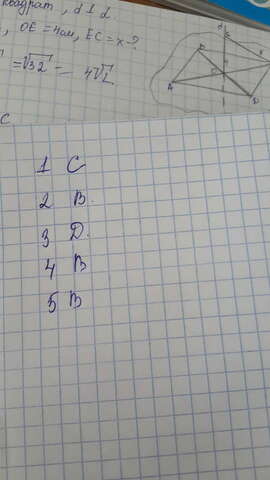 квадрат, d⊥d
, OE = 4см, EC = x - ?
= √32 = 4√2
C
1 C
2 B.
3 D.
4 B
5 B